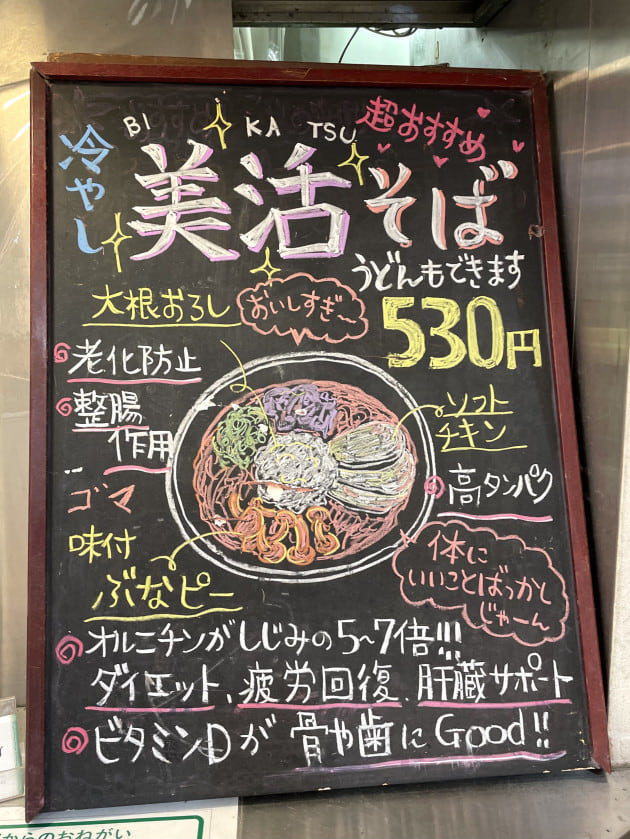 BI KA TSU
超おすすめ
冷やし
美活そば
うどんもできます
530円
大根おろし
おいしすぎ〜
老化防止
整腸
作用
ソフト
チキン
高タンパク
ゴマ
味付
ぶなピー
体に
いいことばっかし
じゃーん
オルニチンがしじみの5〜7倍!!!
ダイエット、疲労回復、肝臓サポート
ビタミンDが骨や歯にGood!!
からのおねがい